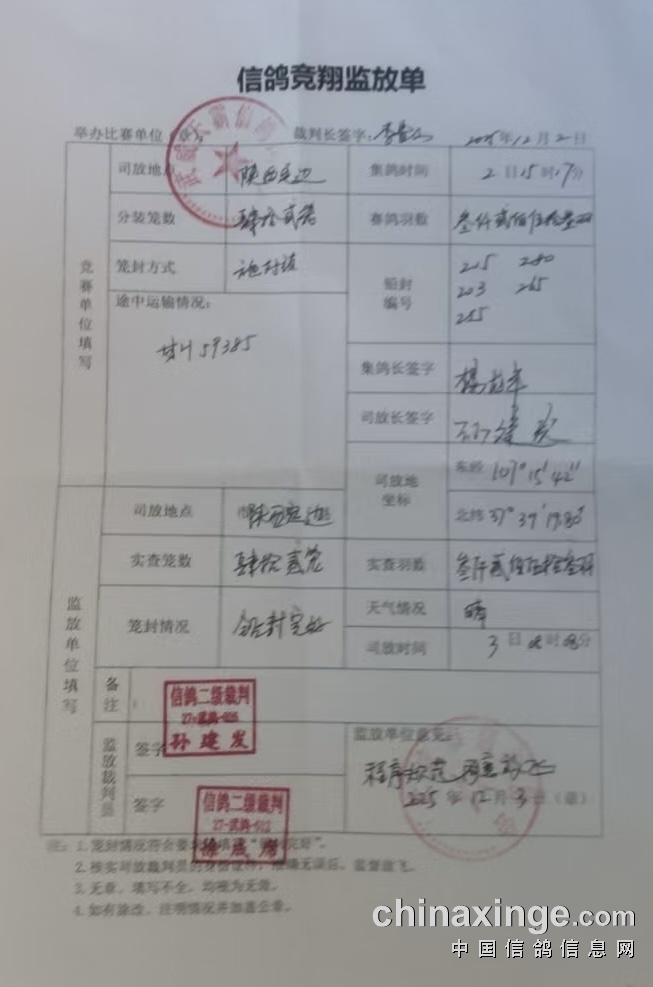 信鸽竞翔监放单
举办比赛单位(章):
裁判长签字:
2025年12月2日
竞赛单位填写
司放地点 陕西定边 集鸽时间 2日15时17分
分装笼数 肆拾贰笼 赛鸽羽数 叁仟贰佰伍拾叁羽
笼封方式 施封锁 铅封编号 205 280
203 265
255
途中运输情况:
59385
集鸽长签字
司放长签字
司放地坐标 东经 107°15′42″
北纬 37°39′19.80″
监放单位填写
司放地点 陕西定边
实查笼数 肆拾贰笼 实查羽数 叁仟贰佰伍拾叁羽
笼封情况 铅封完好 天气情况 晴
司放时间 3日08时08分
备注:
信鸽二级裁判
孙建发
监放裁判员
签字
签字
信鸽二级裁判
27-武鸽-012
监放单位意见:
程序规范 同意放飞
2025年12月3日(章)
注:1.笼封情况符合要求
2.核实司放裁判员的身份证件,准确无误后,监督放飞。
3.无章、填写不全,均视为无效。
4.如有涂改,注明情况并加盖公章。
chinaxinge.com
中国信鸽信息网